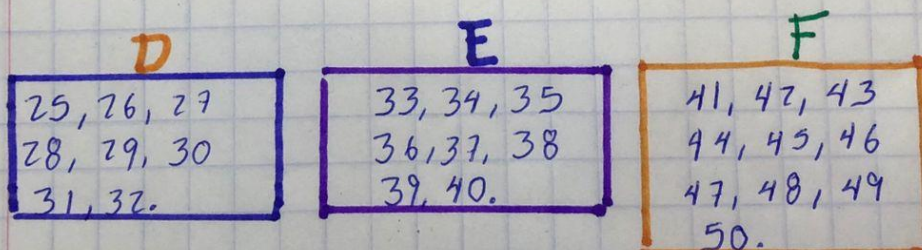 D
25, 26, 27
28, 29, 30
31, 32.
E
33, 34, 35
36, 37, 38
39, 40.
F
41, 42, 43
44, 45, 46
47, 48, 49
50.